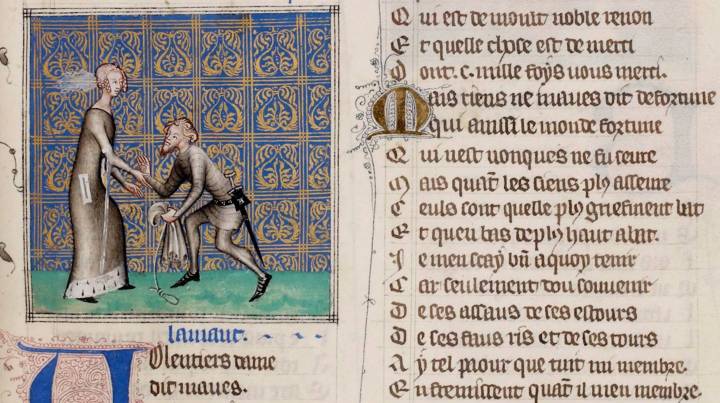 lamant.
Volentiers dame
dit maves.
Qui est de mout noble renon
Et quelle chose est de merci
Dont .c. mille foys vous merci.
Mais riens ne maves dit de fortune
qui ainssi le monde fortune
Qui nest nonques ne fu seure
Mais quāt les siens plꝰ asseure
Ceuls sont quelle plꝰ griefment bat
Et queu bas de plꝰ haut abat.
Je men scay bn̄ a quoy tenir
Car seulement dou souvenir
De ses assaus de ses estours
De ses faus ris et de ses tours
Ay tel paour que tuit mi membre.
En fremissent quāt il men membre.